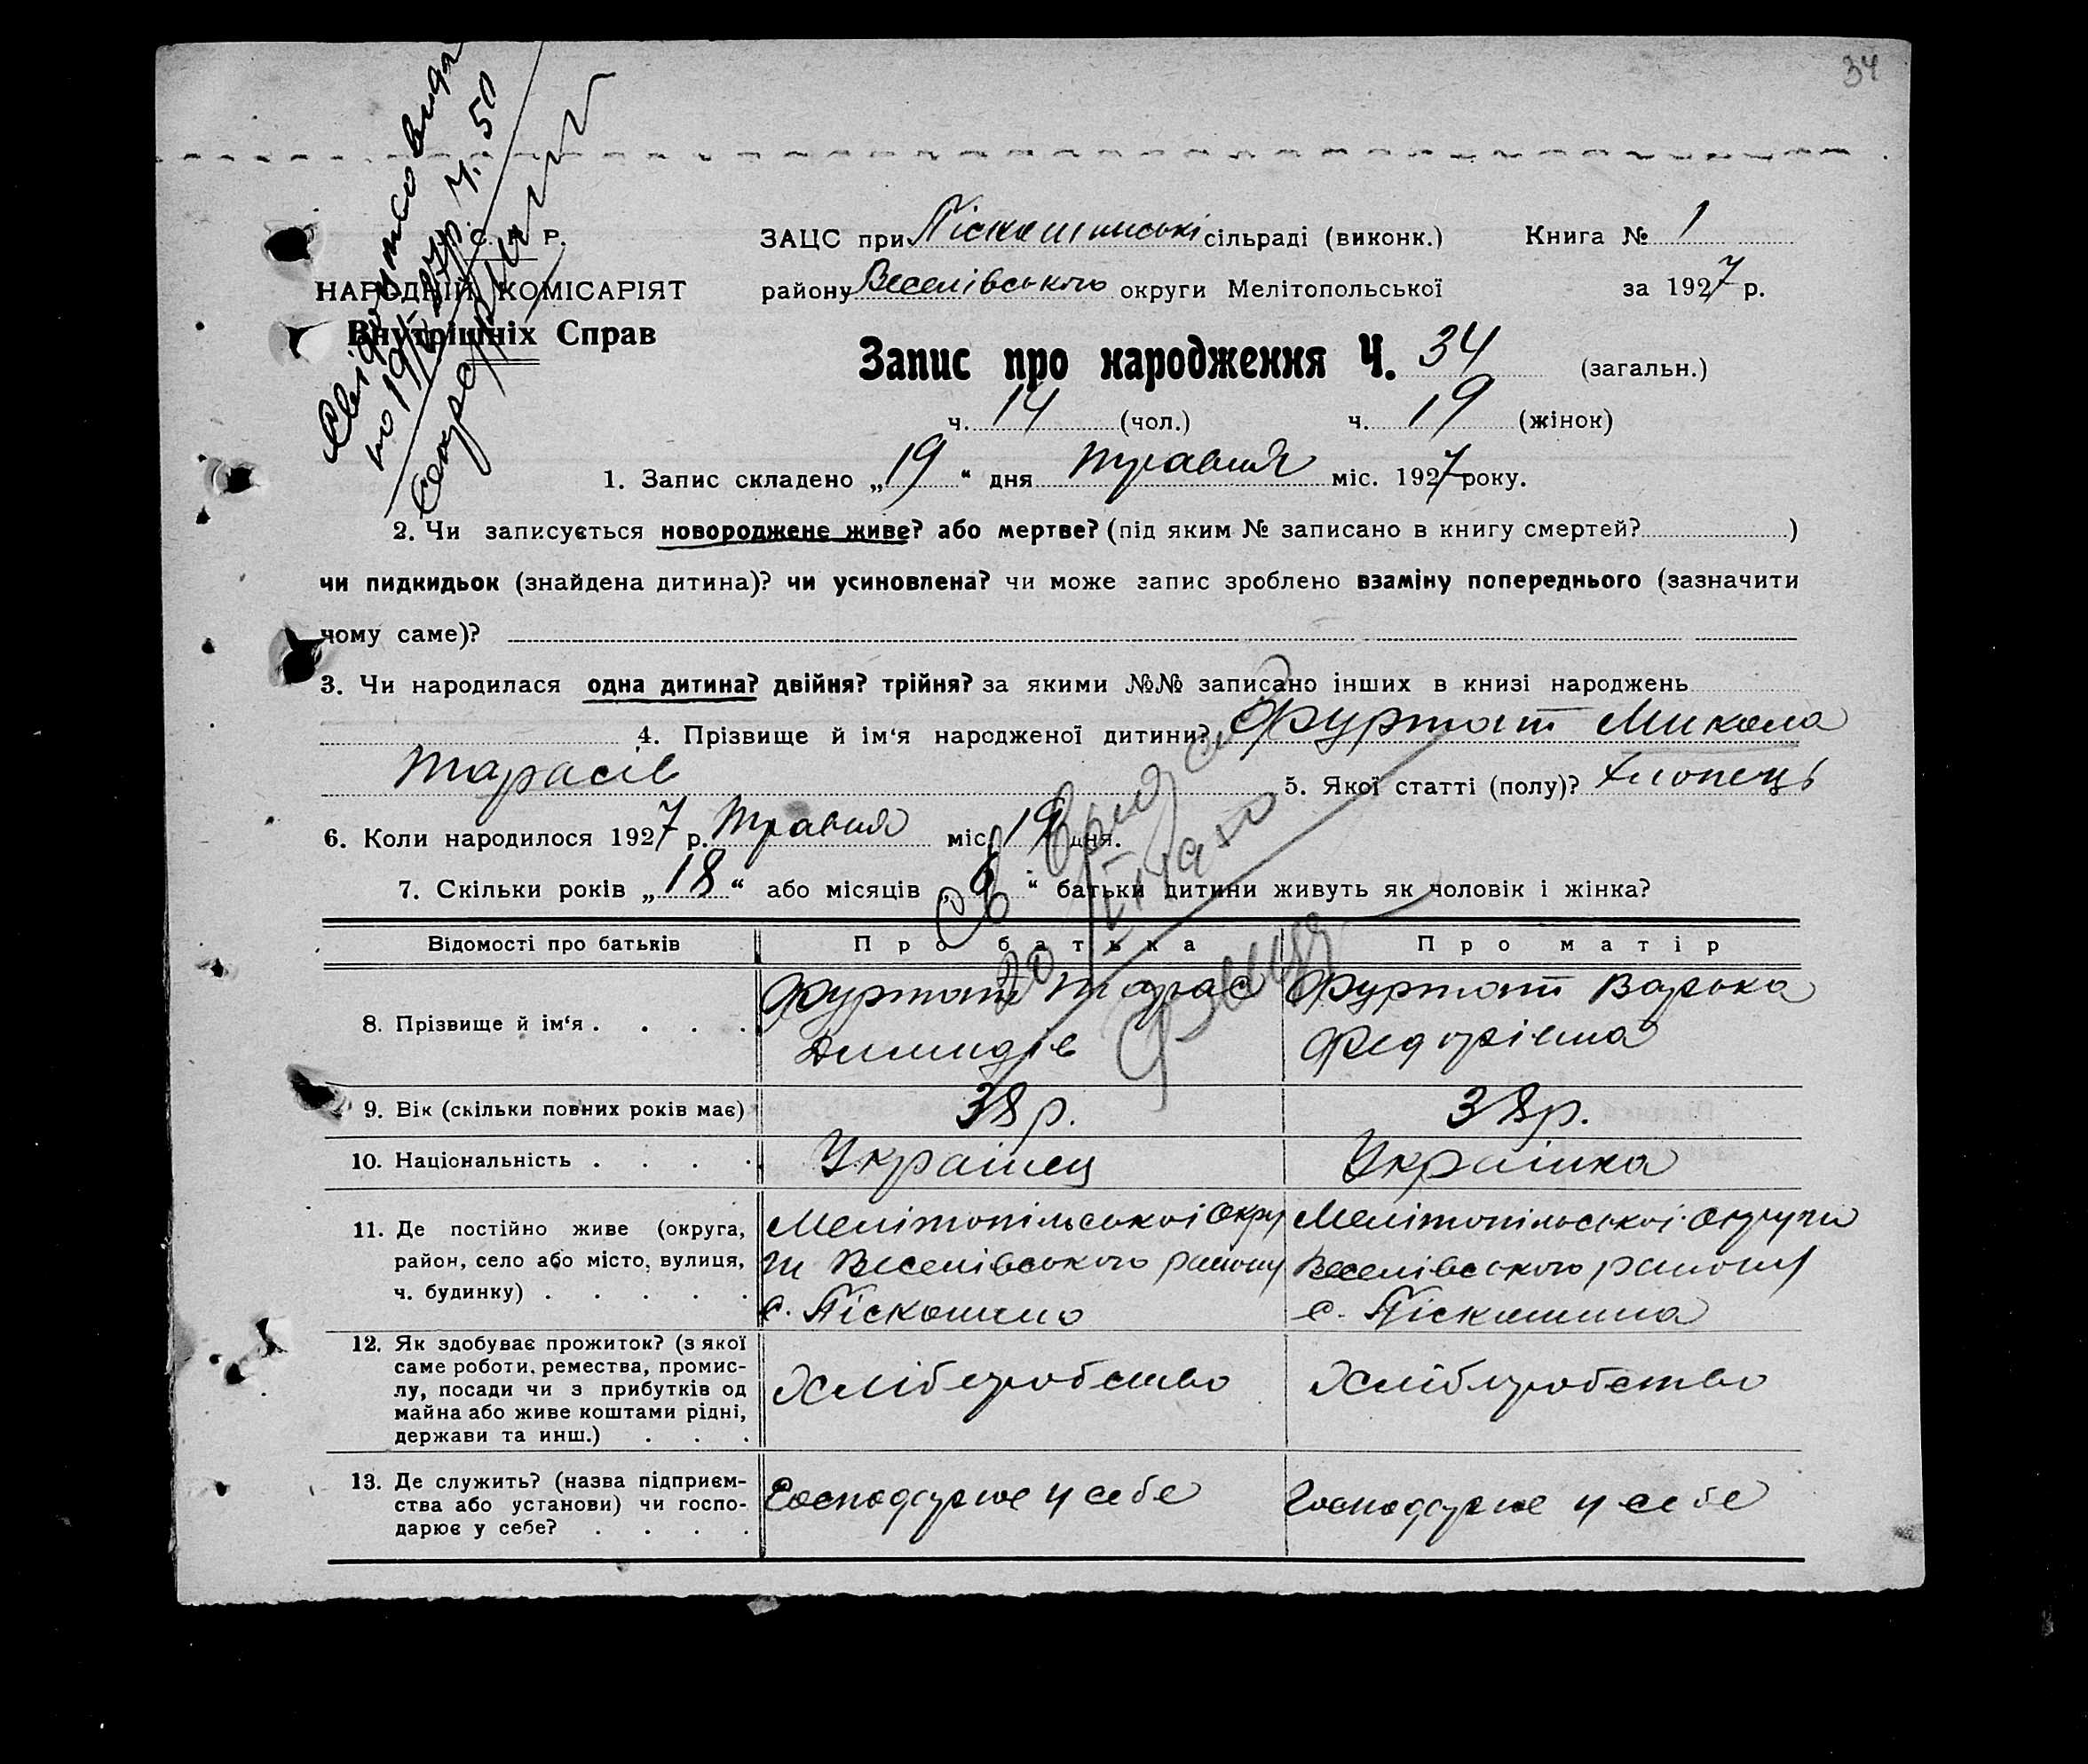 34
С. Р. Р.
НАРОДНІЙ КОМІСАРІЯТ
Внутрішніх Справ
ЗАЦС при Піскошинські сільраді (виконк.) Книга № 1
району Веселівського округи Мелітопольської за 1927 р.
Запис про народження Ч. 34 (загальн.)
ч. 14 (чол.) ч. 19 (жінок)
1. Запис складено „19“ дня травня міс. 1927 року.
2. Чи записується новороджене живе? або мертве? (під яким № записано в книгу смертей? )
чи пидкидьок (знайдена дитина)? чи усиновлена? чи може запис зроблено взаміну попереднього (зазначити
чому саме)?
3. Чи народилася одна дитина? двійня? трійня? за якими №№ записано інших в книзі народжень
4. Прізвище й ім‘я народженої дитини? Фуртат Микола
Тарасів 5. Якої статті (полу)? Хлопець
6. Коли народилося 1927 р. Травня міс. 19 дня.
7. Скільки років „18“ або місяців „ “ батьки дитини живуть як чоловік і жінка?
Відомості про батьків Про батька Про матір
8. Прізвище й ім‘я . . . . Фуртат Тарас Фуртат Варька
Федорівна
9. Вік (скільки повних років має) 38 р. 38 р.
10. Національність . . . . Українец Українка
11. Де постійно живе (округа, Мелітопільської Окру Мелітопільської Округи
район, село або місто, вулиця, ги Веселівського району Веселівського району
ч. будинку) . . . . . с. Піскошино с. Піскошина
12. Як здобуває прожиток? (з якої
саме роботи, ремества, промис-
лу, посади чи з прибутків од Хліборобство Хліборобство
майна або живе коштами рідні,
держави та инш.) . . .
13. Де служить? (назва підприєм-
ства або установи) чи госпо- Господарює у себе Господарює у себе
дарює у себе? . . . .